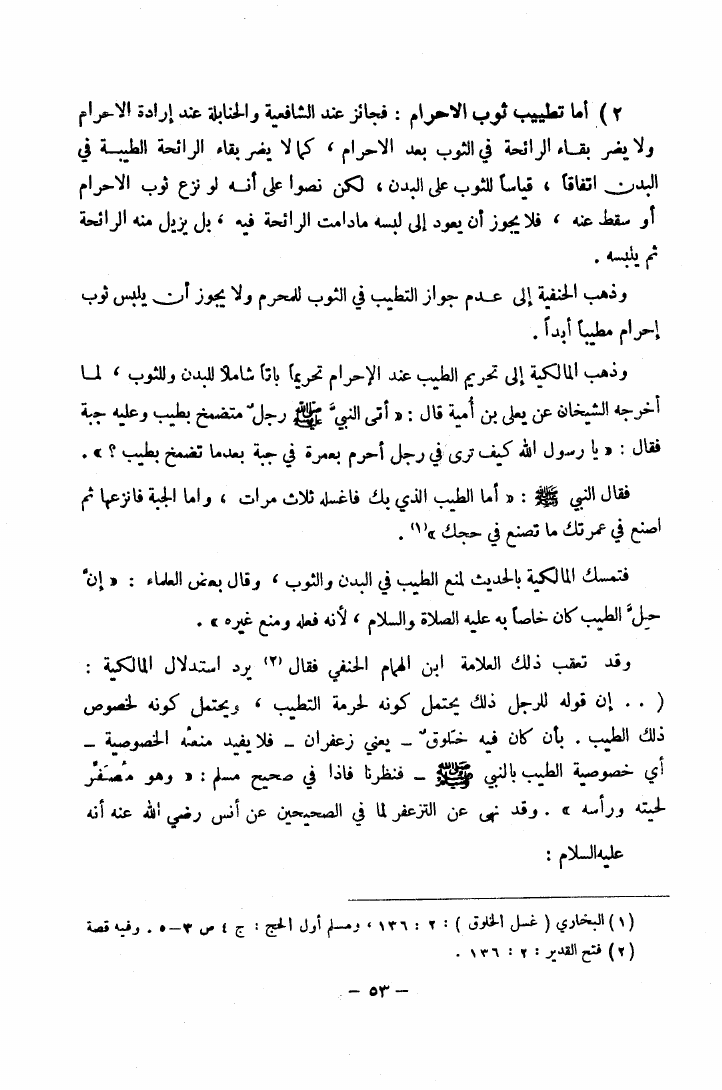 ٢) أما تطييب ثوب الاحرام : فجائز عند الشافعية والحنابلة عند إرادة الاحرام
ولا يضر بقاء الرائحة في الثوب بعد الاحرام ، كما لا يضر بقاء الرائحة الطيبة في
البدن اتفاقاً ، قياساً للثوب على البدن ، لكن نصوا على أنه لو نزع ثوب الاحرام
أو سقط عنه ، فلا يجوز أن يعود إلى لبسه مادامت الرائحة فيه ، بل يزيل منه الرائحة
ثم يلبسه .
وذهب الحنفية إلى عدم جواز التطيب في الثوب للمحرم ولا يجوز أن يلبس ثوب
إحرام مطيباً أبداً .
وذهب المالكية إلى تحريم الطيب عند الإحرام تحريماً باتاً شاملاً للبدن وللثوب ، لما
أخرجه الشيخان عن يعلى بن أُمية قال : « أتى النبيَّ ﷺ رجلٌ متضمخ بطيب وعليه جبة
فقال : « يا رسول الله كيف ترى في رجل أحرم بعمرة في جبة بعدما تضمخ بطيب ؟ » .
فقال النبي ﷺ : « أما الطيب الذي بك فاغسله ثلاث مرات ، واما الجبة فانزعها ثم
اصنع في عمرتك ما تصنع في حجك »(١) .
فتمسك المالكية بالحديث لمنع الطيب في البدن والثوب ، وقال بعض العلماء : « إنَّ
حِلَّ الطيب كان خاصاً به عليه الصلاة والسلام ، لأنه فعله ومنع غيره » .
وقد تعقب ذلك العلامة ابن الهمام الحنفي فقال(٢) يرد استدلال المالكية :
( . . إن قوله للرجل ذلك يحتمل كونه لحرمة التطيب ، ويحتمل كونه لخصوص
ذلك الطيب . بأن كان فيه خَلوقٌ ــ يعني زعفران ــ فلا يفيد منعُه الخصوصية ــ
أي خصوصية الطيب بالنبي ﷺ ــ فنظرنا فاذا في صحيح مسلم : « وهو مُصَفِّر
لحيته ورأسه » . وقد نهى عن التزعفر لما في الصحيحين عن أنس رضي الله عنه أنه
عليه السلام :
(١) البخاري ( غسل الخلوق ) : ٢ : ١٣٦ ، ومسلم أول الحج : ج ٤ ص ٣–٥ . وفيه قصة
(٢) فتح القدير : ٢ : ١٣٦ .
– ٥٣ –